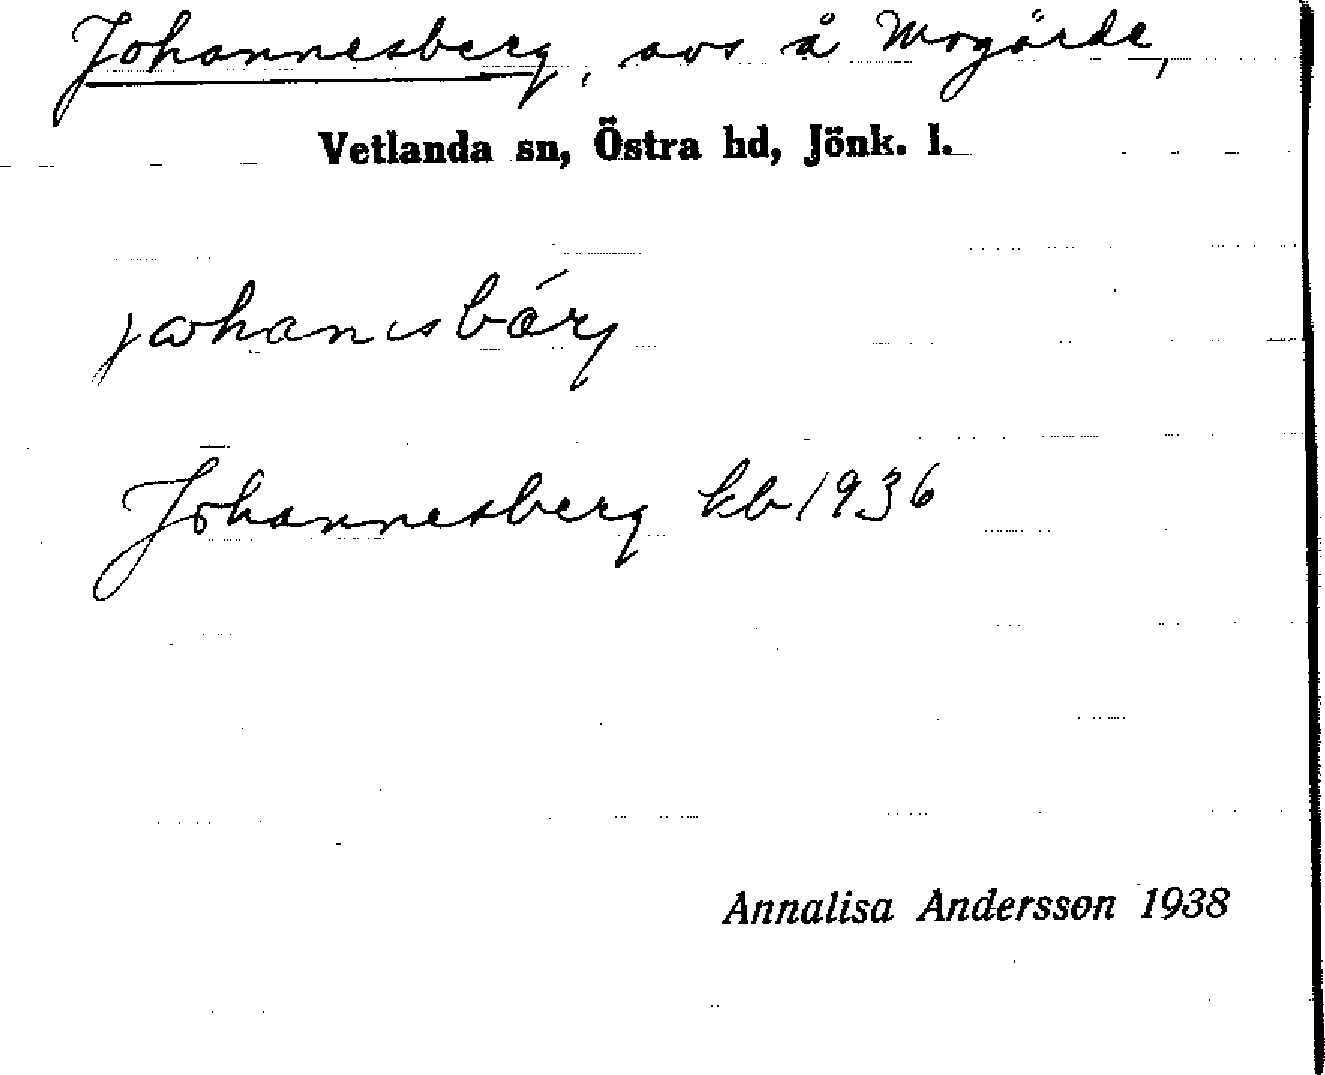 Johannesberg, avs å Mogärde,
Vetlanda sn, Östra hd, Jönk. l.
johanisbärg
Johannesberg kb 1936
Annalisa Andersson 1938